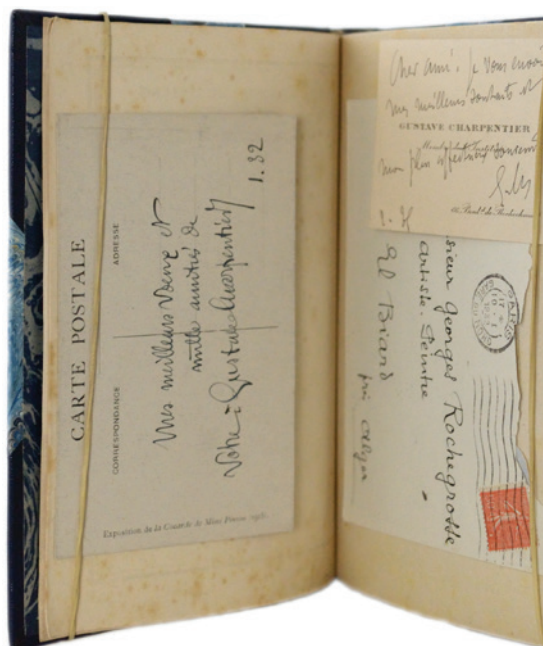 CARTE POSTALE
CORRESPONDANCE
ADRESSE
Mes meilleurs voeux et
mille amitiés de
Votre Gustave Charpentier
1.32
Exposition de la
Cher ami. Je vous
mes meilleurs souhaits et
GUSTAVE CHARPENTIER
mon plus affectueux
sieur Georges Rochegrosse
Artiste. Peintre
El Biard
près Alger
PARIS